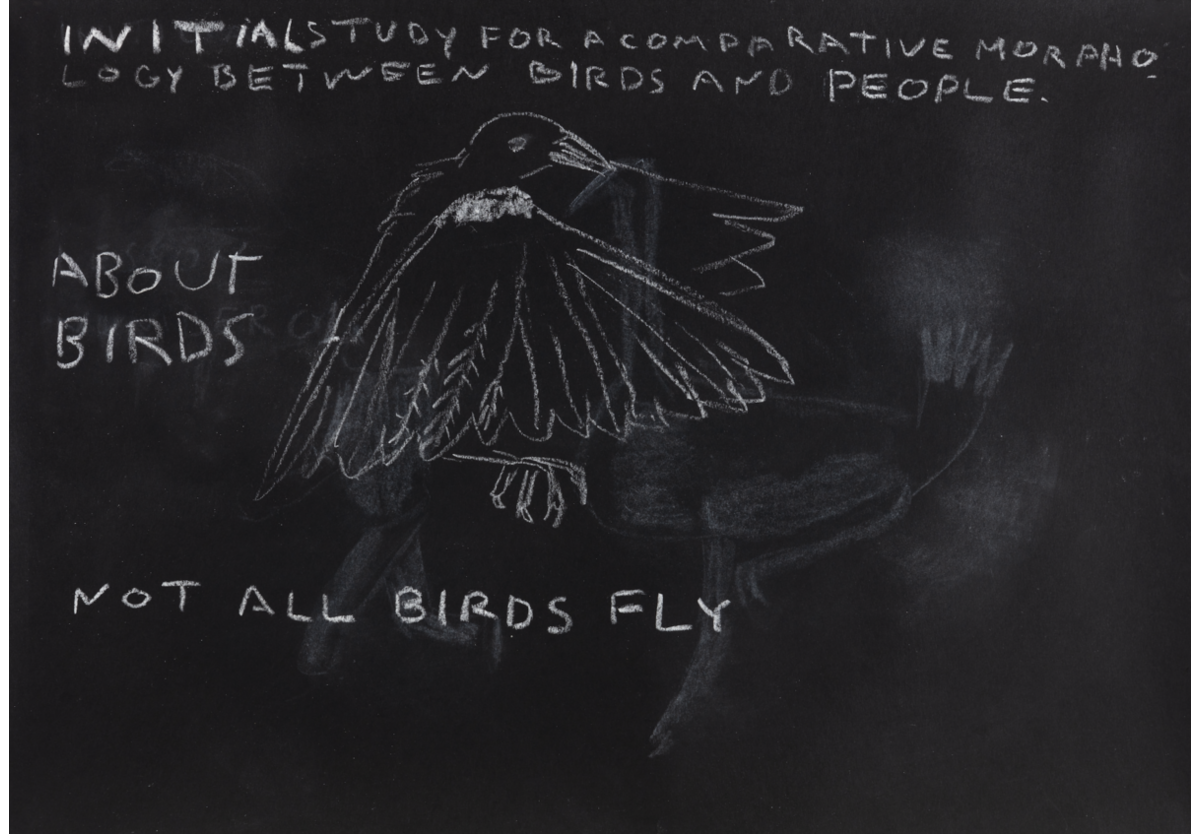 INITIALSTUDY FOR A COMPARATIVE MORPHO-
LOGY BETWEEN BIRDS AND PEOPLE.
ABOUT
BIRDS
NOT ALL BIRDS FLY